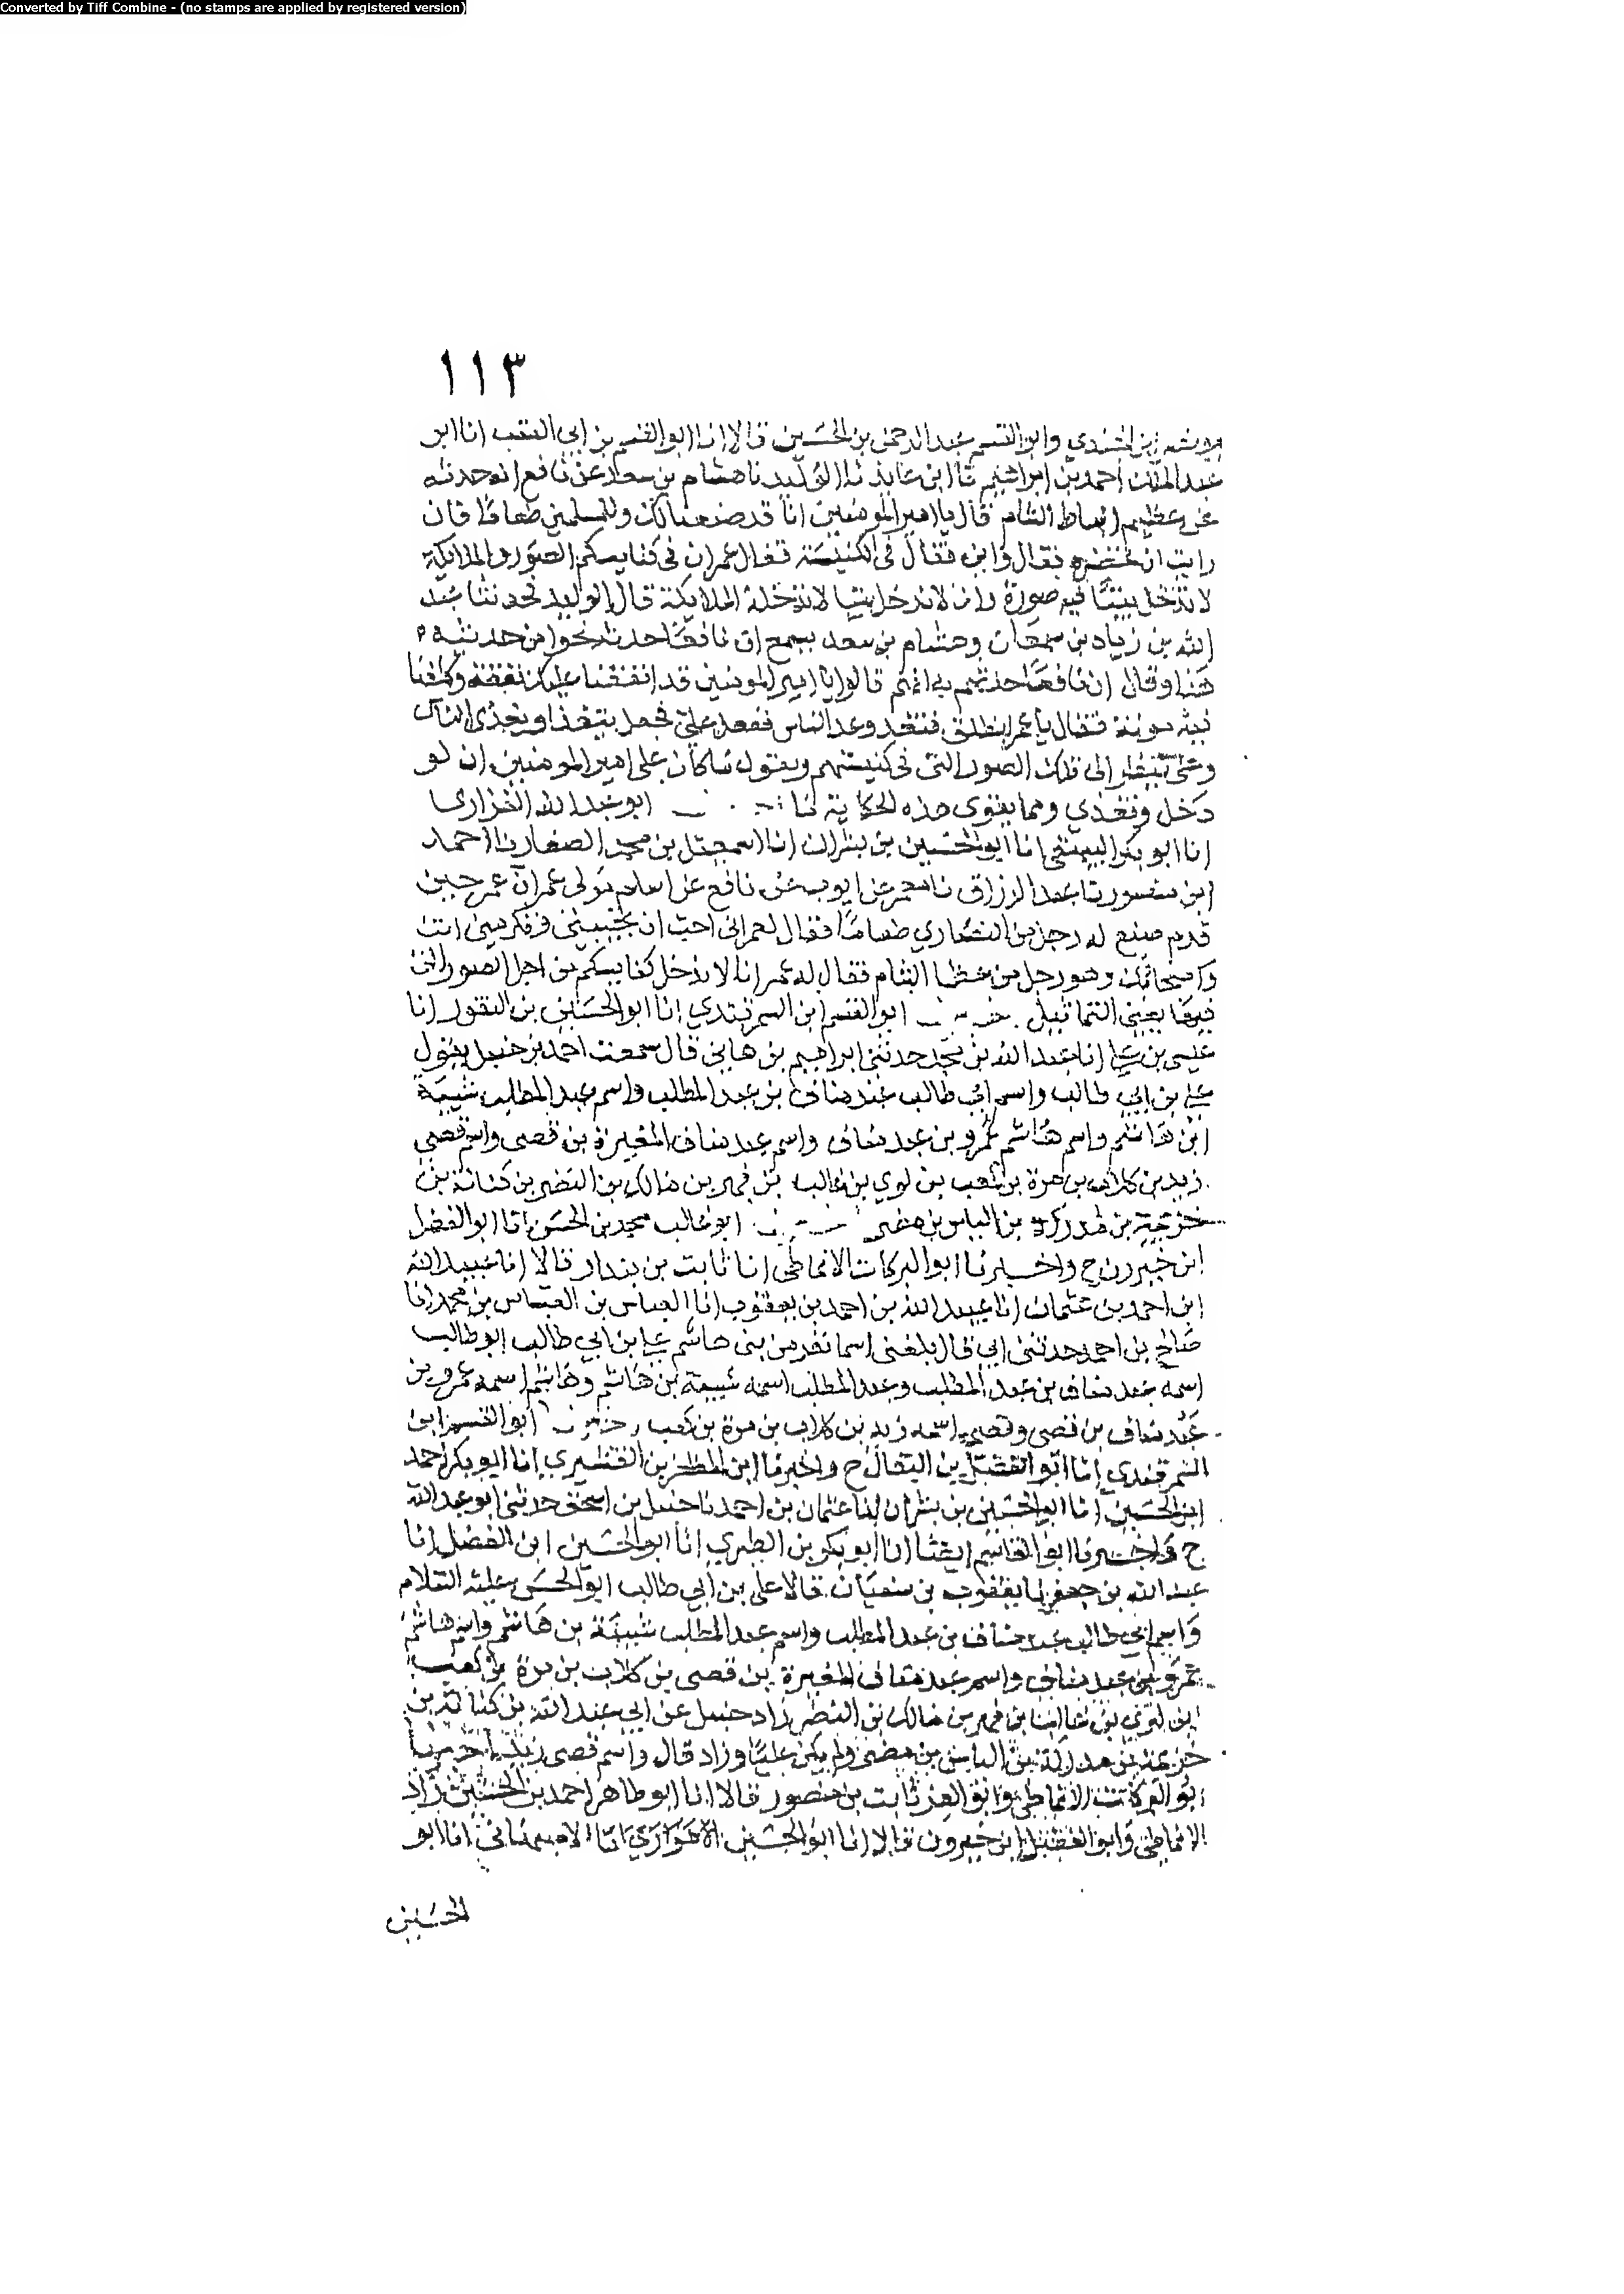 Converted by Tiff Combine - (no stamps are applied by registered version)
١١٣
وابو القسم عبد الرحمن بن الحسين قالا انا ابو القسم بن ابي العقب انا ابو
عبد الملك احمد بن ابراهيم نا ابن عايذ نا الوليد نا هشام بن سعد عن نافع انه حدثه
عن عظيم انباط الشام قال يا امير المومنين انا قد صنعنا لك وللمسلمين طعاما فان
رايت ان تحضره فقال واين فقال في الكنيسة فقال عمر ان في كنايسكم الصور والملايكة
لا تدخل بيتا فيه صورة وانا لا ندخل بيتا لا تدخله الملايكة قال الوليد فحدثنا عبد
الله بن زياد بن سمعان وهشام بن سعد يسمع ان نافعا حدثه نحوا من حديثه
هذا وقال ان نافعا حدثهم به انهم قالوا يا امير المومنين قد انفقنا عليك نفقة وكلفنا
فيه مونة فقال يا علي انطلق فتغد وغد الناس ففعل علي فجعل يتغذا ويغذي الناس
وعلي ينظر الى تلك الصور التي في كنيستهم ويقول ما كان على امير المومنين ان لو
دخل وتغذي ومما يقوي هذه الحكاية ما ابو عبد الله الفزاري
انا ابو بكر البيهقي انا ابو الحسين بن بشران انا اسمعيل بن محمد الصفار نا احمد
ابن منصور نا عبد الرزاق نا معمر عن ايوب عن نافع عن اسلم مولى عمر ان عمر حين
قدم صنع له رجل من النصاري طعاما فقال لعمر اني احب ان تجيبني وتكرمني انت
واصحابك وهو رجل من عظما الشام فقال له عمر انا لا ندخل كنايسكم من اجل الصور التي
فيها يعني التماثيل ابو القسم ابن السمرقندي انا ابو الحسين بن النقور انا
عيسى بن علي انا عبد الله بن محمد حدثني ابراهيم بن هاني قال سمعت احمد بن حنبل يقول
علي بن ابي طالب واسم ابي طالب عبد مناف بن عبد المطلب واسم عبد المطلب شيبة
ابن هاشم واسم هاشم عمرو بن عبد مناف واسم عبد مناف المغيرة بن قصي واسم قصي
زيد بن كلاب بن مرة بن كعب بن لوي بن غالب بن فهر بن مالك بن النضر بن كنانة بن
خزيمة بن مدركة بن الياس بن مضر ابو غالب محمد بن الحسن انا ابو الفضل
ابن خيرون ح واخبرنا ابو البركات الانماطي انا ثابت بن بندار قالا انا عبيد الله
ابن احمد بن عثمان انا عبيد الله بن احمد بن يعقوب انا العباس بن العباس بن محمد انا
صالح بن احمد حدثني ابي قال بلغني اسما نفر من بني هاشم علي بن ابي طالب ابو طالب
اسمه عبد مناف بن عبد المطلب وعبد المطلب اسمه شيبة بن هاشم وهاشم اسمه عمرو بن
عبد مناف بن قصي وقصي اسمه زيد بن كلاب بن مرة بن كعب ابو القسم ابن
السمرقندي انا ابو الفضل بن البقال ح واخبرنا ابن المظفر بن القشيري انا ابو بكر احمد
ابن الحسين انا ابو الحسين بن بشران انا عثمان بن احمد نا حنبل بن اسحق حدثني ابو عبد الله
ح واخبرنا ابو القاسم ايضا انا ابو بكر بن الطبري انا ابو الحسين ابن الفضل انا
عبد الله بن جعفر نا يعقوب بن سفيان قالا علي بن ابي طالب ابو الحسن عليه السلام
واسم ابي طالب عبد مناف بن عبد المطلب واسم عبد المطلب شيبة بن هاشم واسم هاشم
عمرو بن عبد مناف واسم عبد مناف المغيرة بن قصي بن كلاب بن مرة بن كعب
ابن لوي بن غالب بن فهر بن مالك بن النضر زاد حنبل عن ابي عبد الله بن كنانة بن
خزيمة بن مدركة بن الياس بن مضر ولم يكن عليا وزاد قال واسم قصي زيد اخبرنا
ابو البركات الانماطي وابو العز ثابت بن منصور قالا انا ابو طاهر احمد بن الحسن زاد
الانماطي وابو الفضل ابن خيرون قالا انا ابو الحسين الاهوازي انا الاصبهاني انا ابو
الحسين